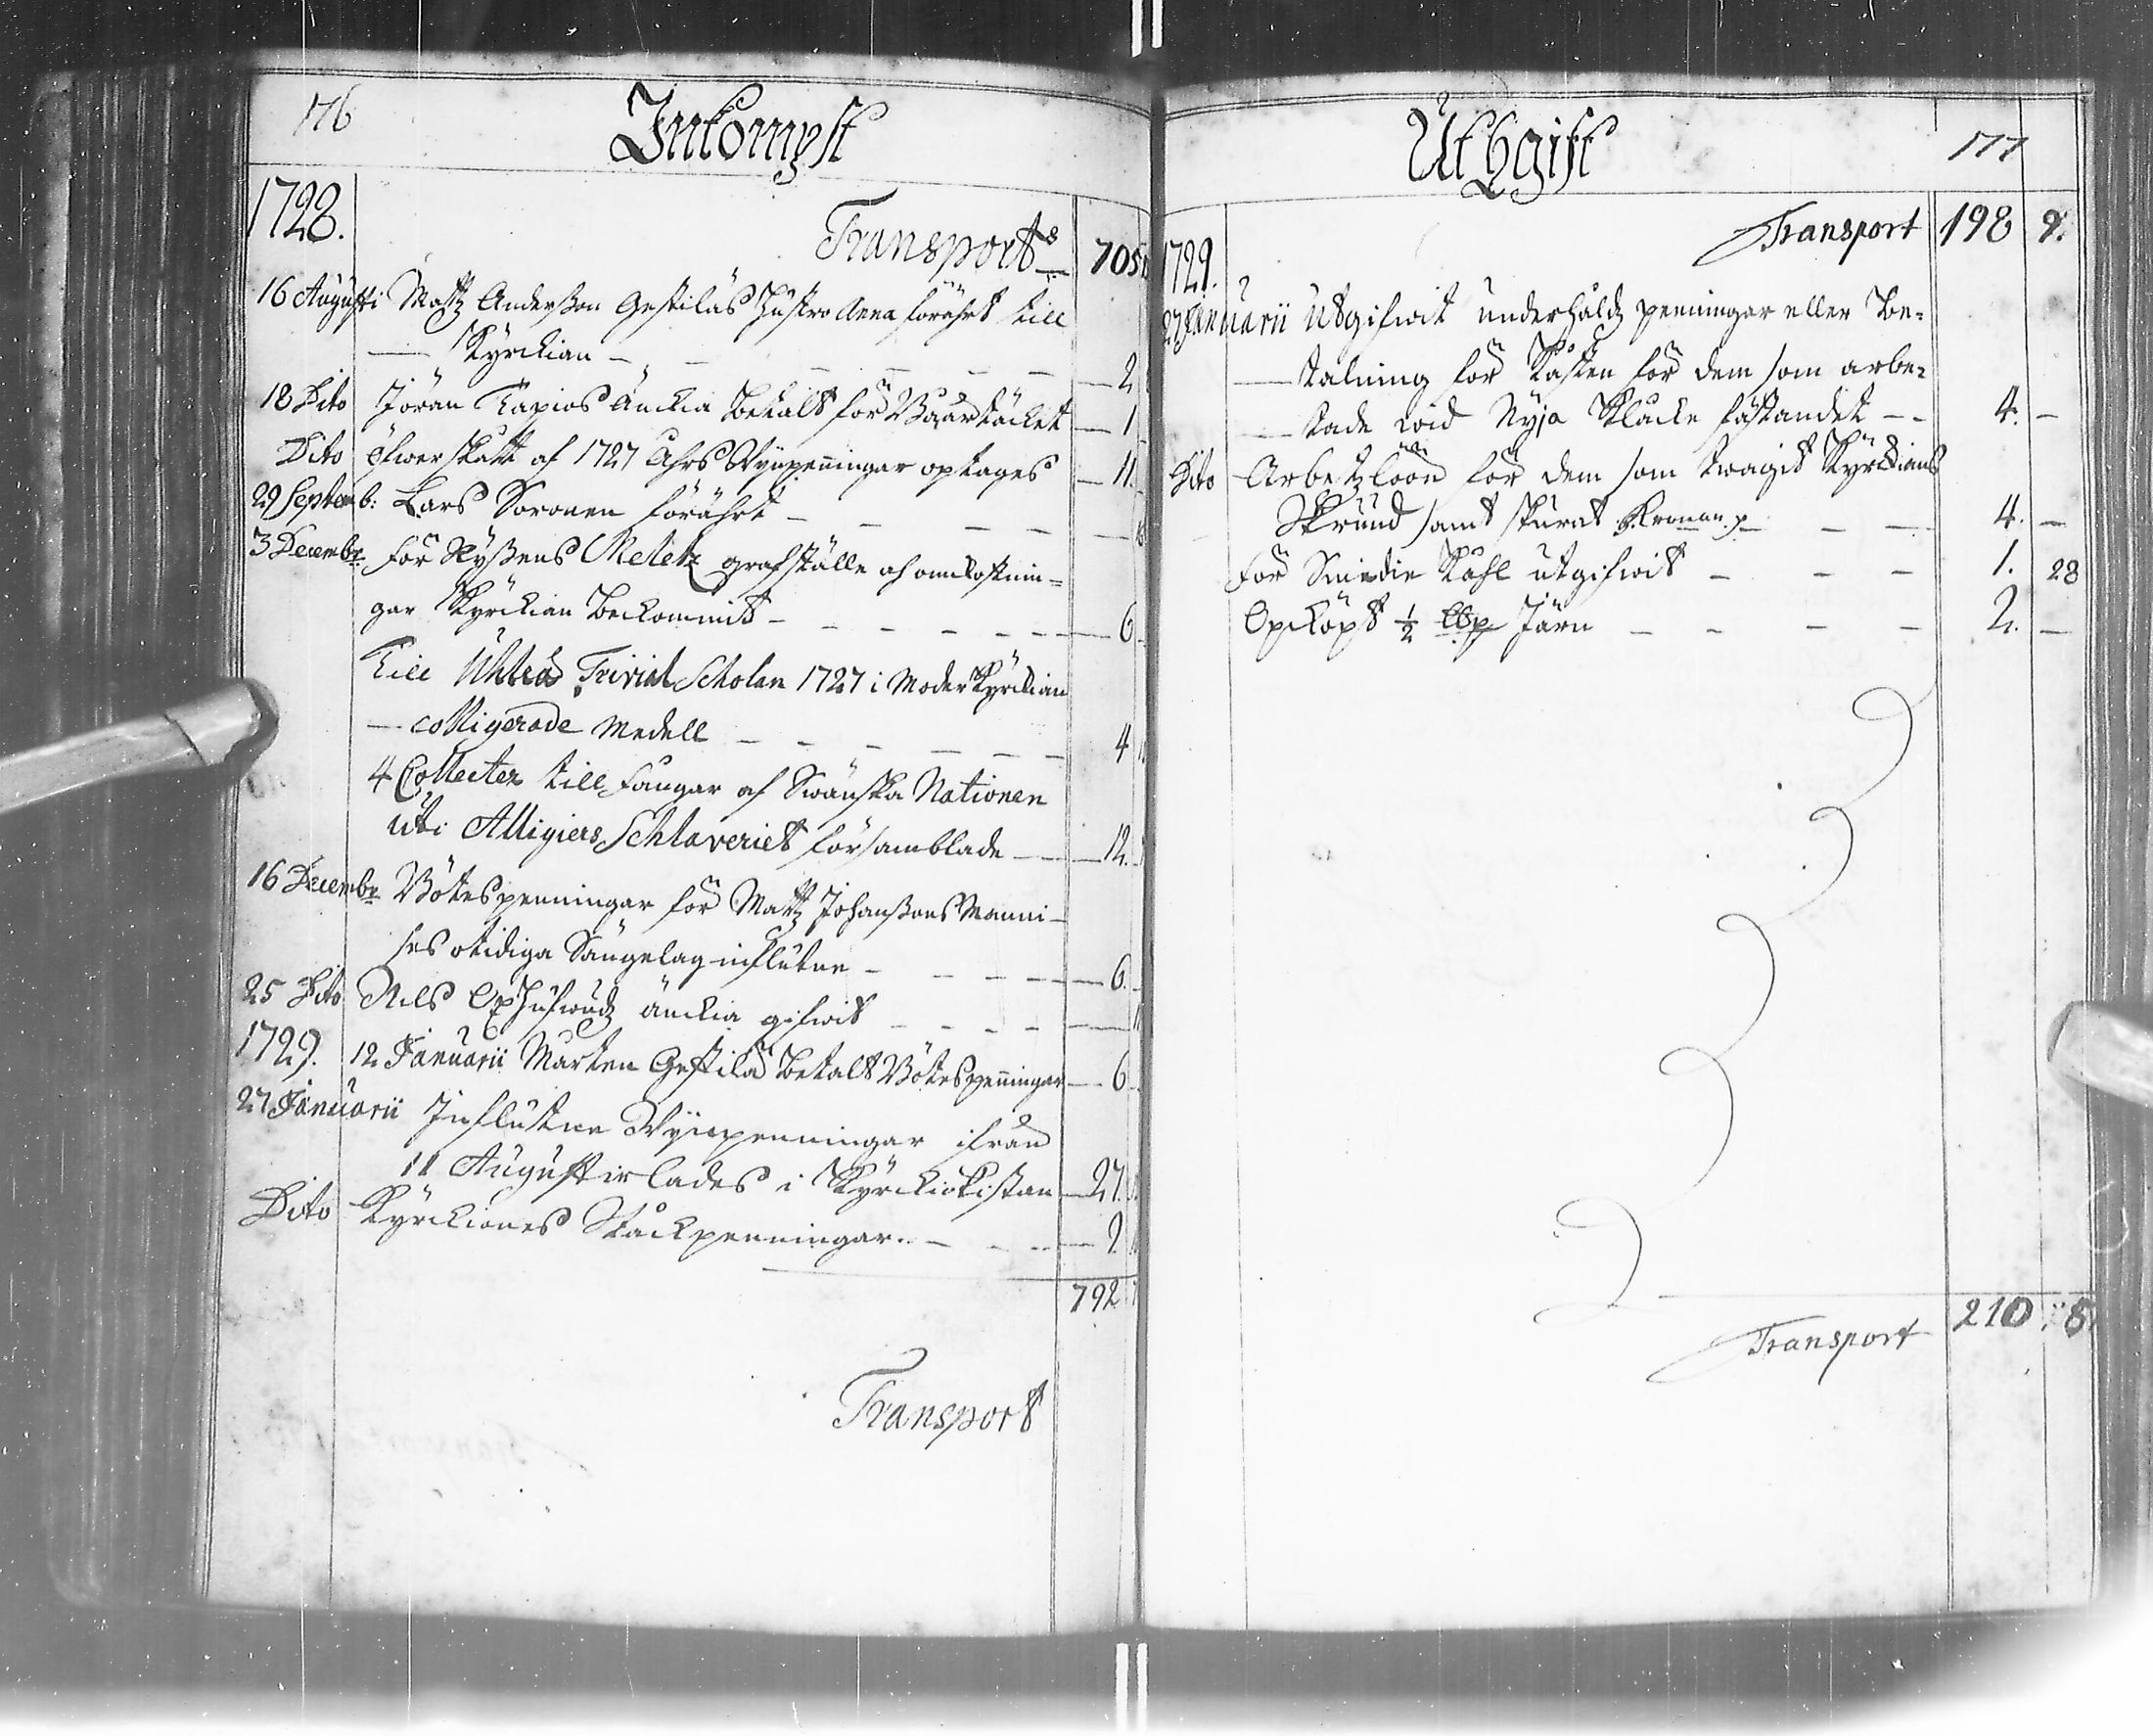 176
Inkompst
1728.
Transport 705
16 Augusti Mattz Anderßon Gestiläs Hustro Anna förährt till
Kyrckian 2
18 Dito Jöran Tapios Änckia betalt för Båårtäcket 1
Dito Öfwerskått af 1727 Åhrs Wijnpenningar optages 11.
29 Septemb: Lars Soronen förährt
3 Decembr. för Nyßens Meletz grafställe af omkostnin-
gar Kyrckian bekommit 6.
till Uhleå Trivial Scholan 1727 i Moder Kyrckian
colligerade medell 4
4 Collecter till Fångar af Swänska Nationen
uti Alligiers Schlaveriet församblade 12.
16 Decembr Bötespenningar för Mattz Johanßons Manni-
ses otidiga Sängelag influtne 6.
25 Dito Nils änckia gifwit
1729. 12 Januarii Marten Gestilä betalt Bötespenningar 6
27 Januarii Influtne Wijnpenningar ifrån
11 Augusti lades i Kyrckiokistan 27.
Dito Kyrckiones Stäckpenningar 2
792
Transport
Utgift
177
Transport 198 9.
1729.
27 Januarii Utgifwit underhåldz penningar eller be-
talning för kosten för dem som arbe-
tade wid Nyja Klocke fästandet 4. —
Dito Arbetzlöön för dem som Kyrckians
Skrund samt 4. —
för Smidie Kåhl utgifwit 1. 28
Opköpt ½ Järn 2. —
210 5
Transport